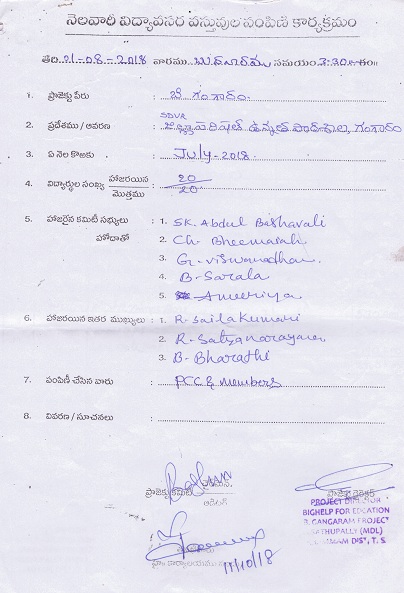 నెలవారీ విద్యావసర వస్తువుల పంపిణి కార్యక్రమం
తేది: 21-08-2018 వారము బుధవారము సమయం 3:30
1. ప్రాజెక్టు పేరు : బి గంగారం.
2. ప్రదేశము / ఆవరణ : SDVR జిల్లా పరిషత్ ఉన్నత పాఠశాల, గంగారం
3. ఏ నెల కొఱకు : July-2018.
4. విద్యార్థుల సంఖ్య హాజరయిన / మొత్తము : 20 / 20
5. హాజరైన కమిటీ సభ్యులు : 1. SK. Abdul Bashavali
హోదాతో 2. Ch. Bheemarali
3. G. viswanadhan.
4. B-Sarala
5. Ameeriya
6. హాజరయిన ఇతర ముఖ్యులు : 1. R. Sailakumari
2. R. Satyanarayana
3. B. Bharathi
7. పంపిణీ చేసిన వారు : PCC & Members
8. వివరణ / సూచనలు :
ప్రాజెక్టు కమిటీ
ప్రాజెక్టు డైరెక్టర్
PROJECT DIRECTOR
BIGHELP FOR EDCATION
B. GANGARAM PROJECT
SATHUPALLY (MDL)
KHAMMAM DIST, T. S.
11/10/18